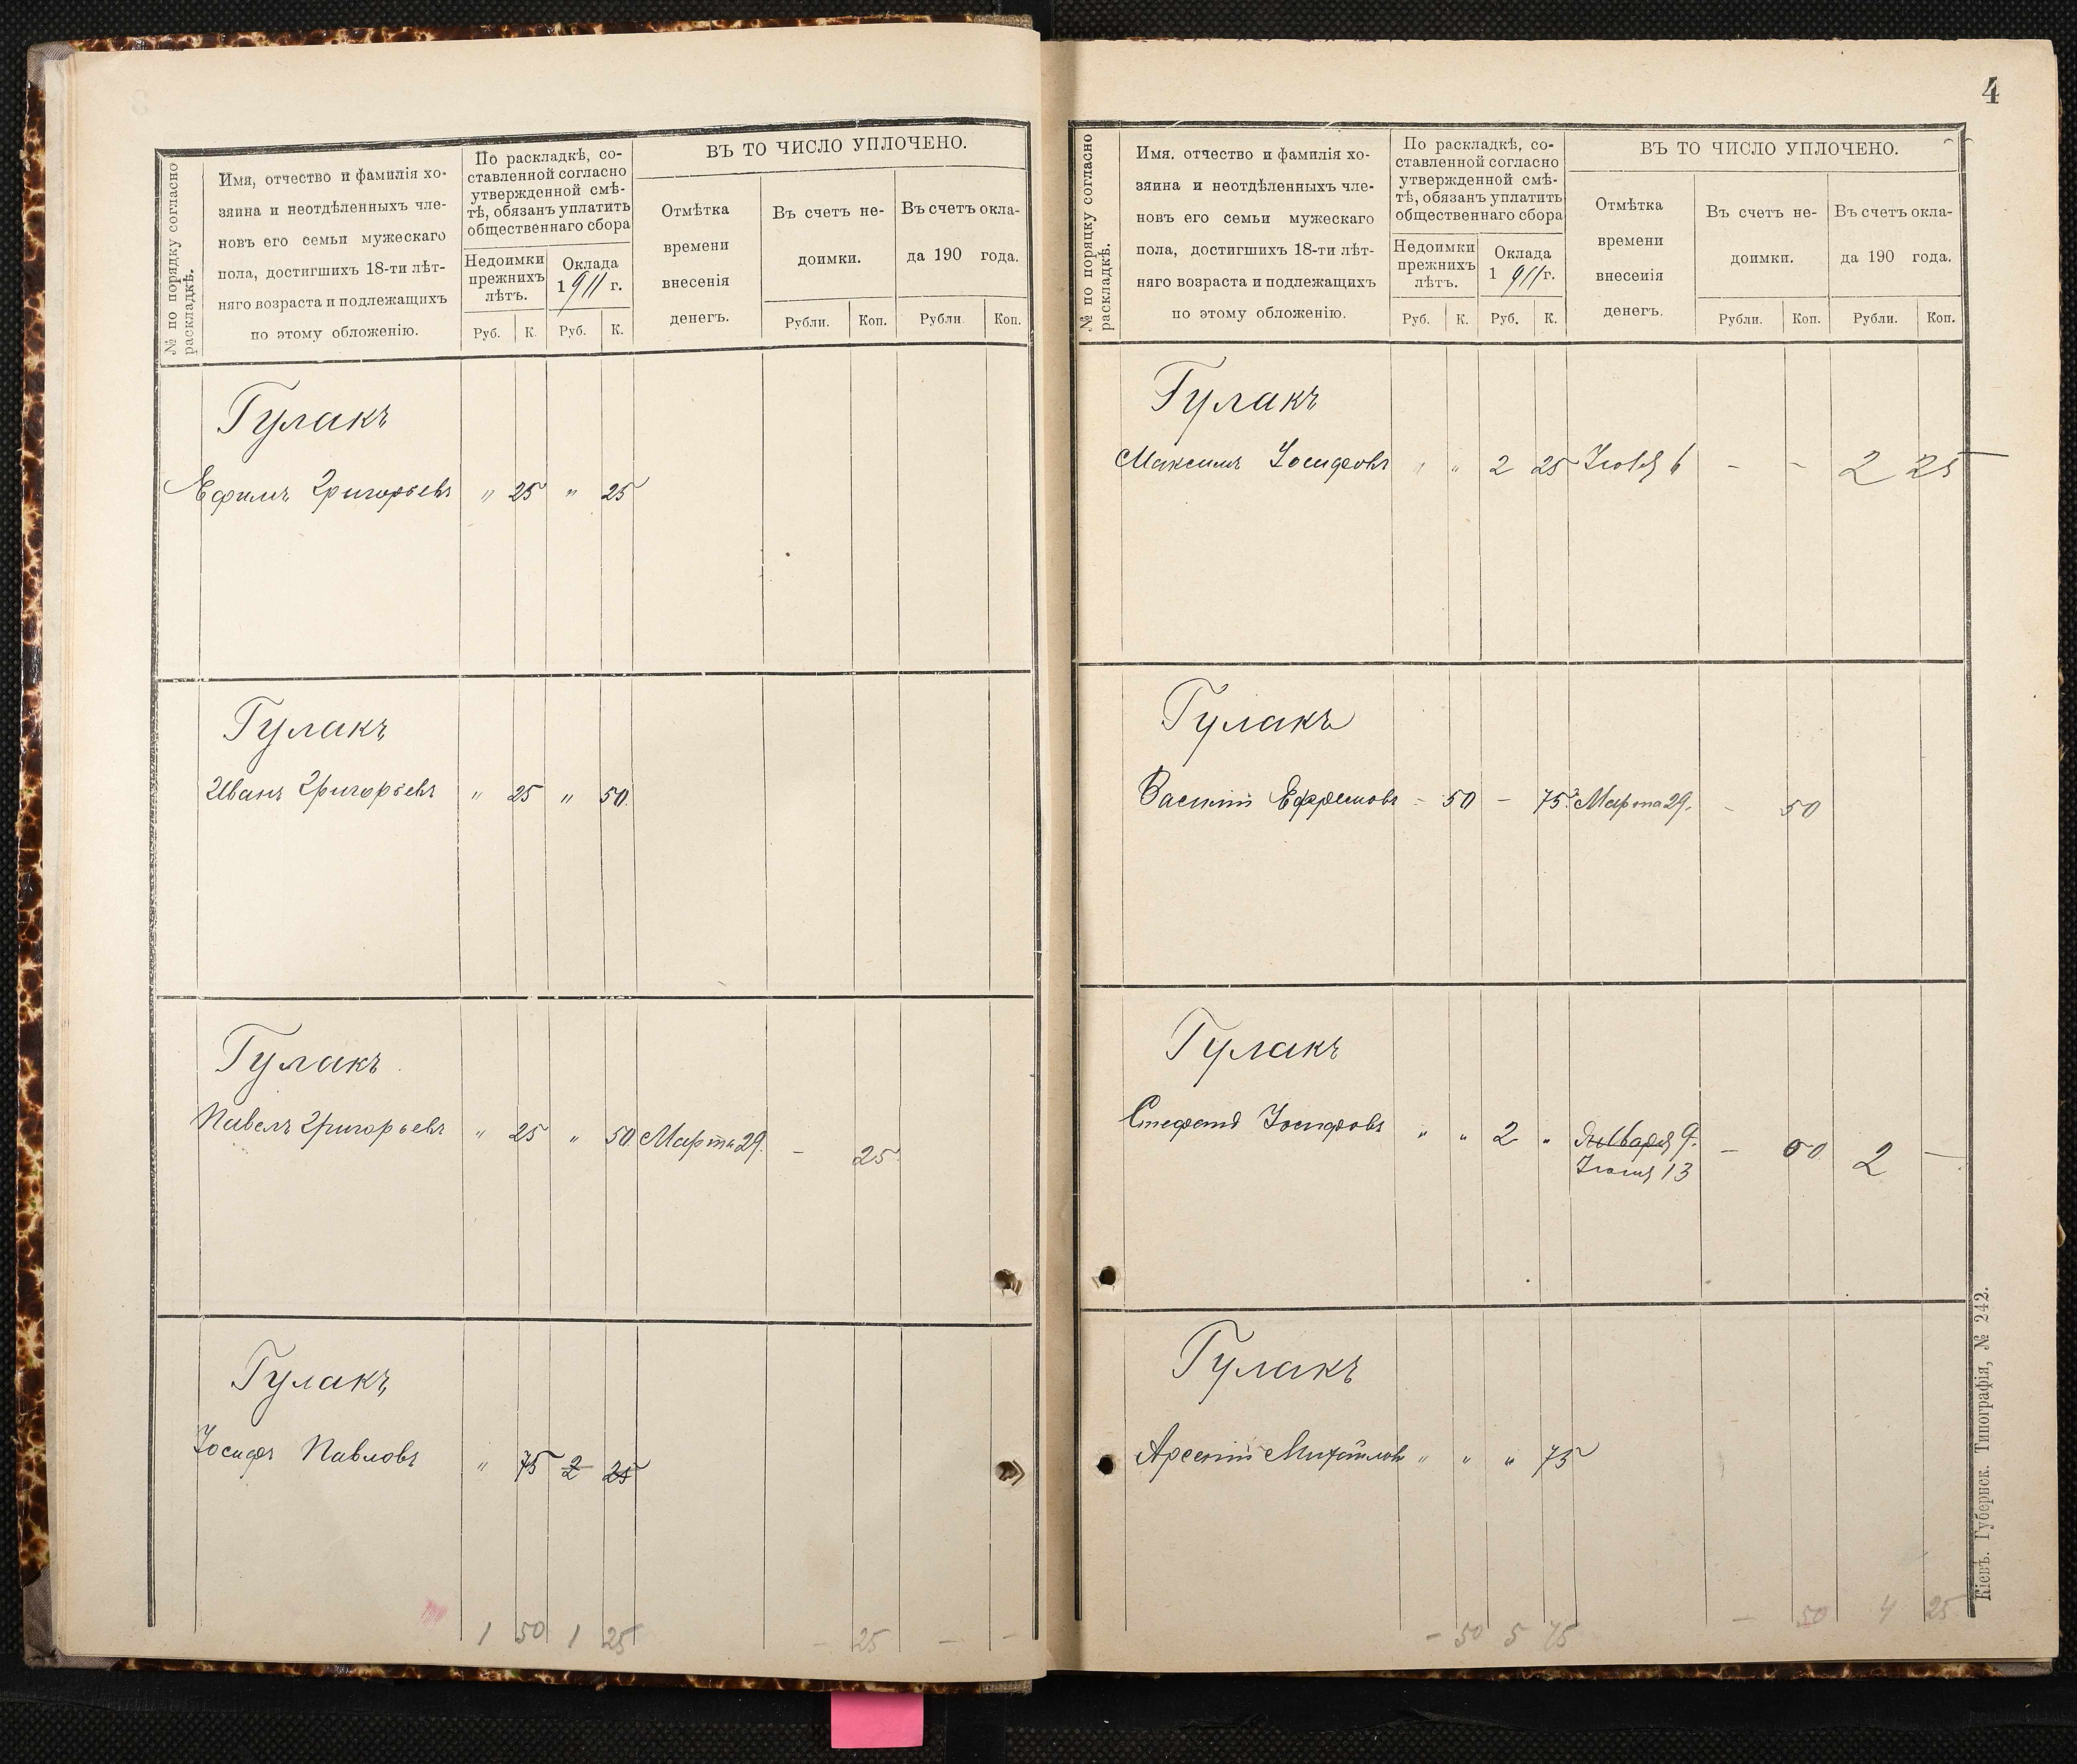 № по порядку согласно
раскладкѣ.
Имя, отчество и фамилія хо-
зяина и неотдѣленныхъ чле-
новъ его семьи мужескаго
пола, достигшихъ 18-ти лѣт-
няго возраста и подлежащихъ
по этому обложенію.
По раскладкѣ, со-
ставленной согласно
утвержденной смѣ-
тѣ, обязанъ уплатить
общественнаго сбора
Недоимки
прежнихъ
лѣтъ.
Оклада
1911 г.
Руб. К. Руб. К.
ВЪ ТО ЧИСЛО УПЛОЧЕНО.
Отмѣтка
времени
внесенія
денегъ.
Въ счетъ не-
доимки.
Въ счетъ окла-
да 190 года.
Рубли. Коп. Рубли. Коп.
Гулакъ
Ефимъ Григорьевъ " 25 " 25
Гулакъ
Иванъ Григорьевъ " 25 " 50
Гулакъ
Павелъ Григорьевъ " 25 " 50 Марта 29. - 25
Гулакъ
Іосифъ Павловъ " 75 2 25
1 50 1 25 - 25 - -
4
№ по порядку согласно
раскладкѣ.
Имя. отчество и фамилія хо-
зяина и неотдѣленныхъ чле-
новъ его семьи мужескаго
пола, достигшихъ 18-ти лѣт-
няго возраста и подлежащихъ
по этому обложенію.
По раскладкѣ, со-
ставленной согласно
утвержденной смѣ-
тѣ, обязанъ уплатить
общественнаго сбора
Недоимки
прежнихъ
лѣтъ.
Оклада
1911 г.
Руб. К. Руб. К.
ВЪ ТО ЧИСЛО УПЛОЧЕНО.
Отмѣтка
времени
внесенія
денегъ.
Въ счетъ не-
доимки.
Въ счетъ окла-
да 190 года.
Рубли. Коп. Рубли. Коп.
Гулакъ
Максимъ Іосифовъ " " 2 25 6 - - 2 25
Гулакъ
Василій Ефремовъ - 50 - 75 Марта 29. - 50
Гулакъ
Стефанъ Іосифовъ " " 2 " Января 9.
Іюня 13 - 50 2 -
Гулакъ
Арсеній Михайловъ " " " 75
- 50 5 75 - 50 4 25
Кіевъ. Губернск. Типографія, № 242.